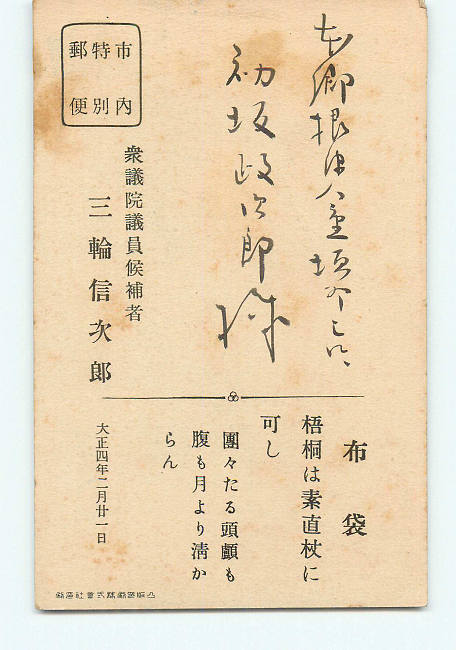 市内
特別
郵便
本郷根津八重垣町
初坂政次郎様
衆議院議員候補者
三輪信次郎
布袋
梧桐は素直杖に
可し
團々たる頭顱も
腹も月より淸か
らん
大正四年二月廿一日